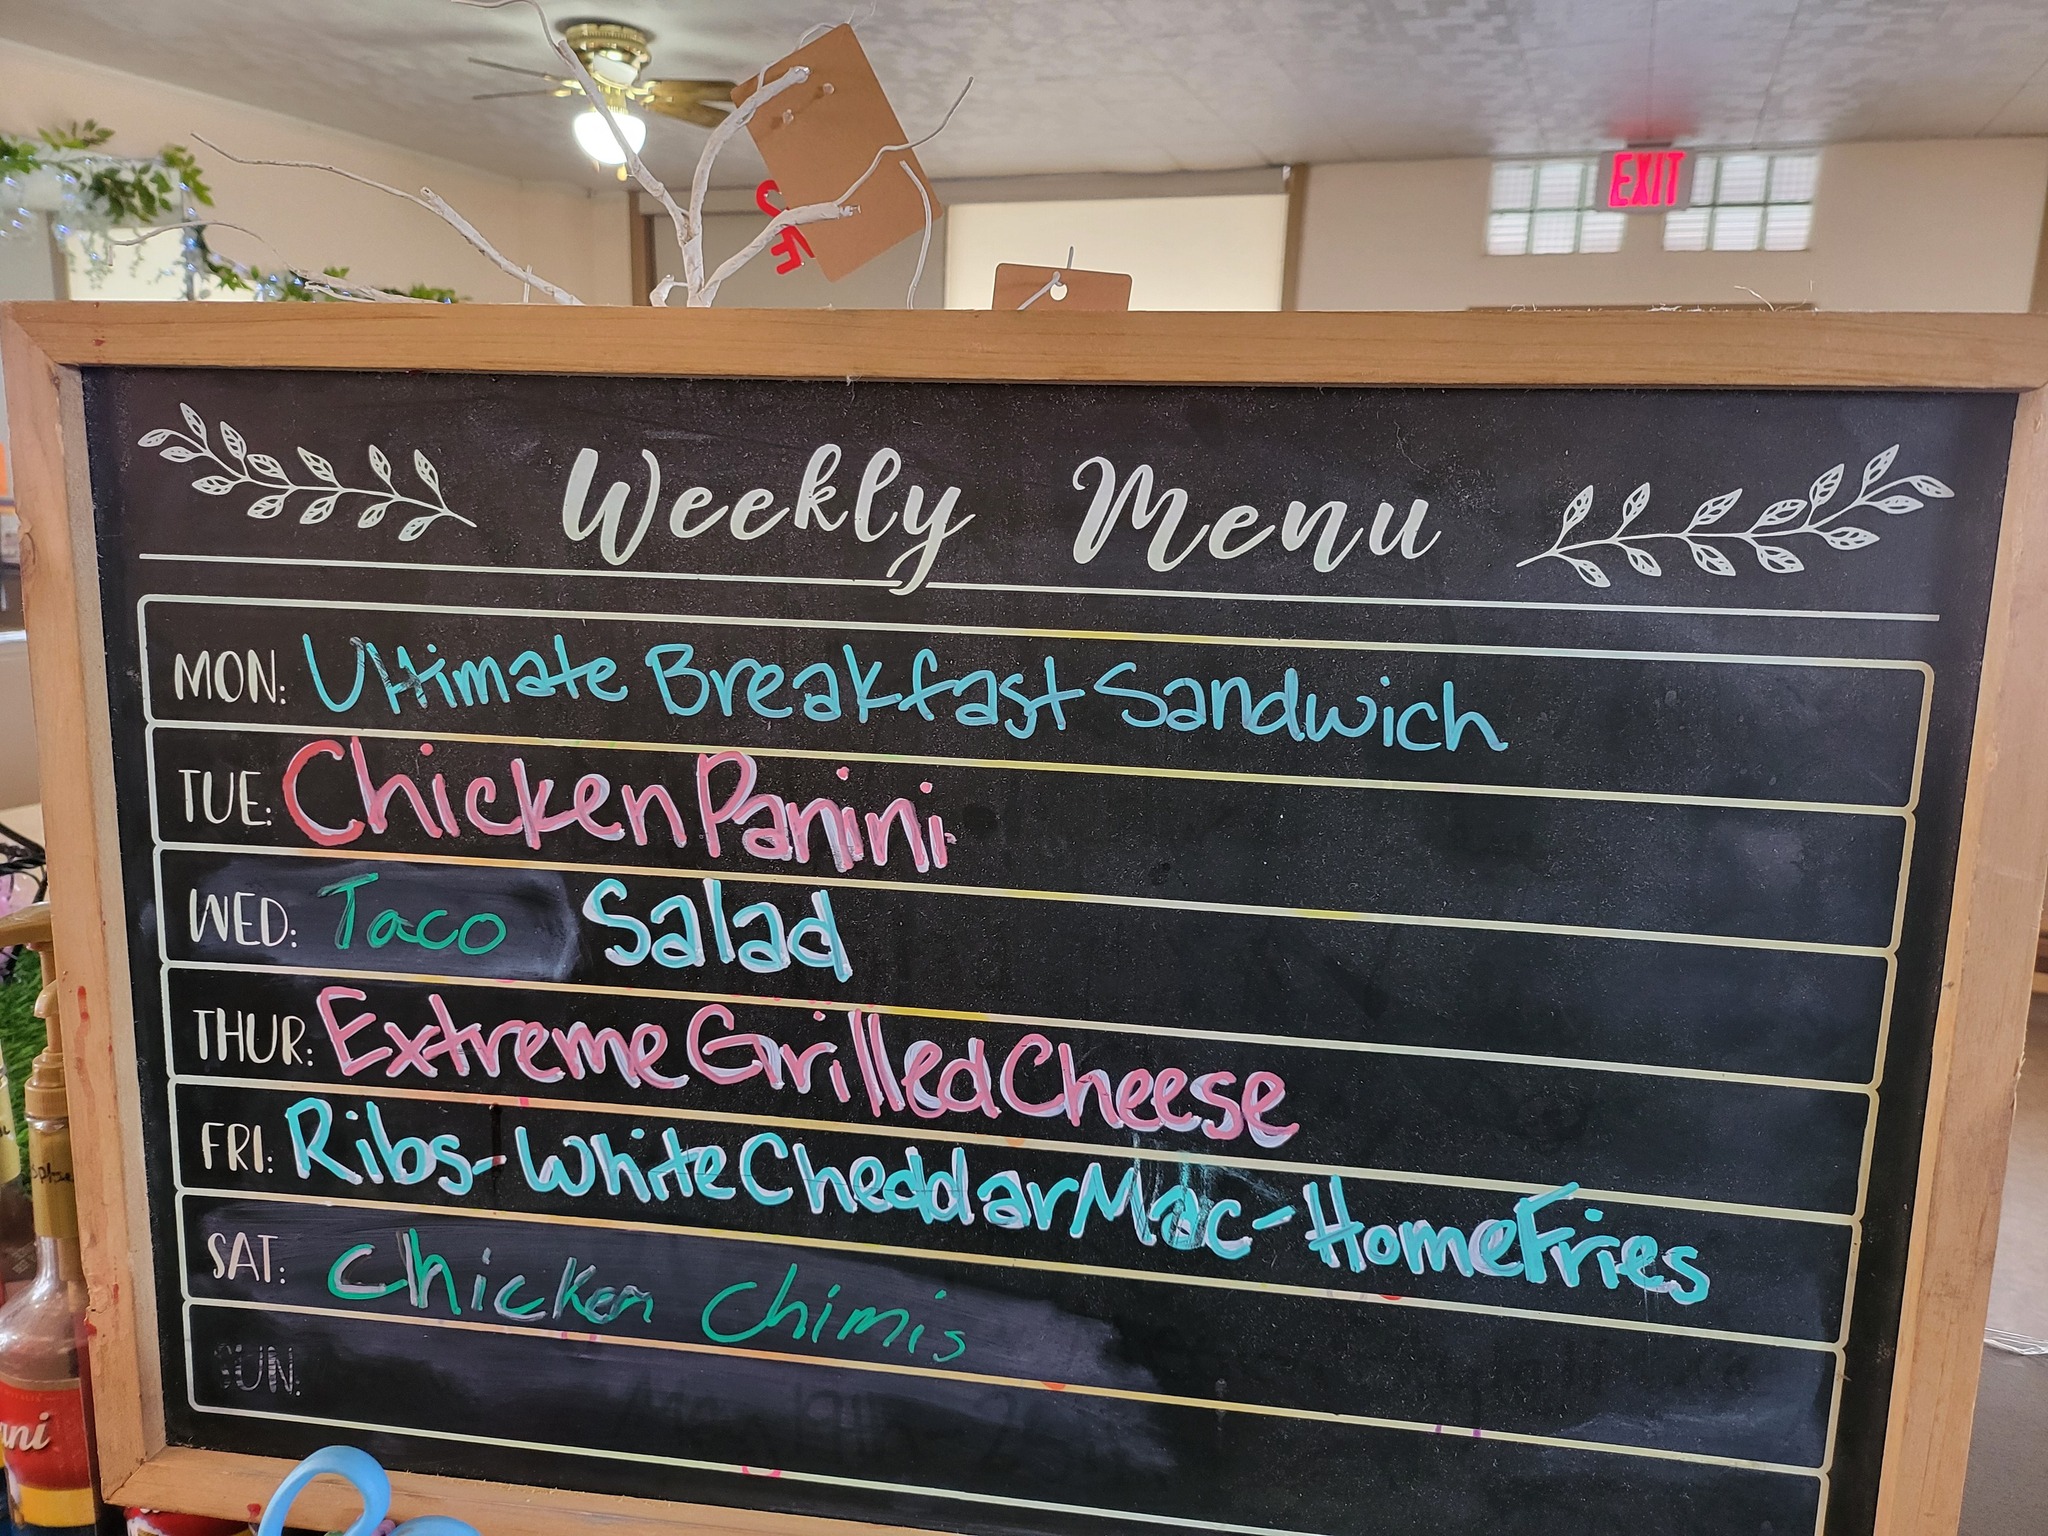 EXIT
Weekly Menu
MON: Ultimate Breakfast Sandwich
TUE: Chicken Panini
WED: Taco Salad
THUR: Extreme Grilled Cheese
FRI: Ribs-White Cheddar Mac-Home Fries
SAT: Chicken Chimis
SUN:
ani